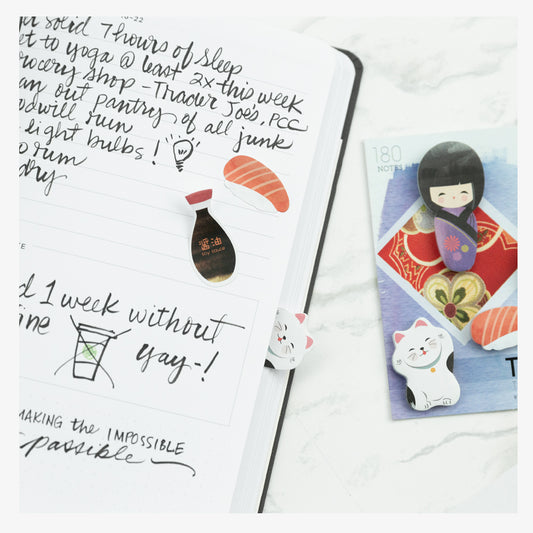 -22
solid 7 hours of sleep
et to yoga @ least 2x this week
rocery shop - Trader Joe's, PCC
an out pantry of all junk
odwill run
light bulbs!
dry
醤油
soy sauce
d 1 week without
ine
yay-!
MAKING the IMPOSSIBLE
possible
180
NOTES
T